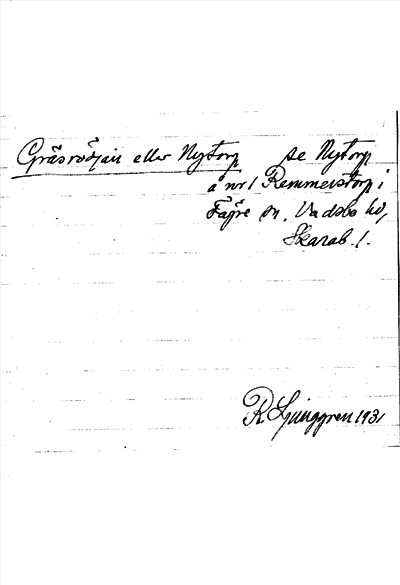 Gräsrödjan eller Nytorp se Nytorp
å nr 1 Remmerstorp i
Fägre sn, Vadsbo hd,
Skarab. l.
R Ljunggren 1931